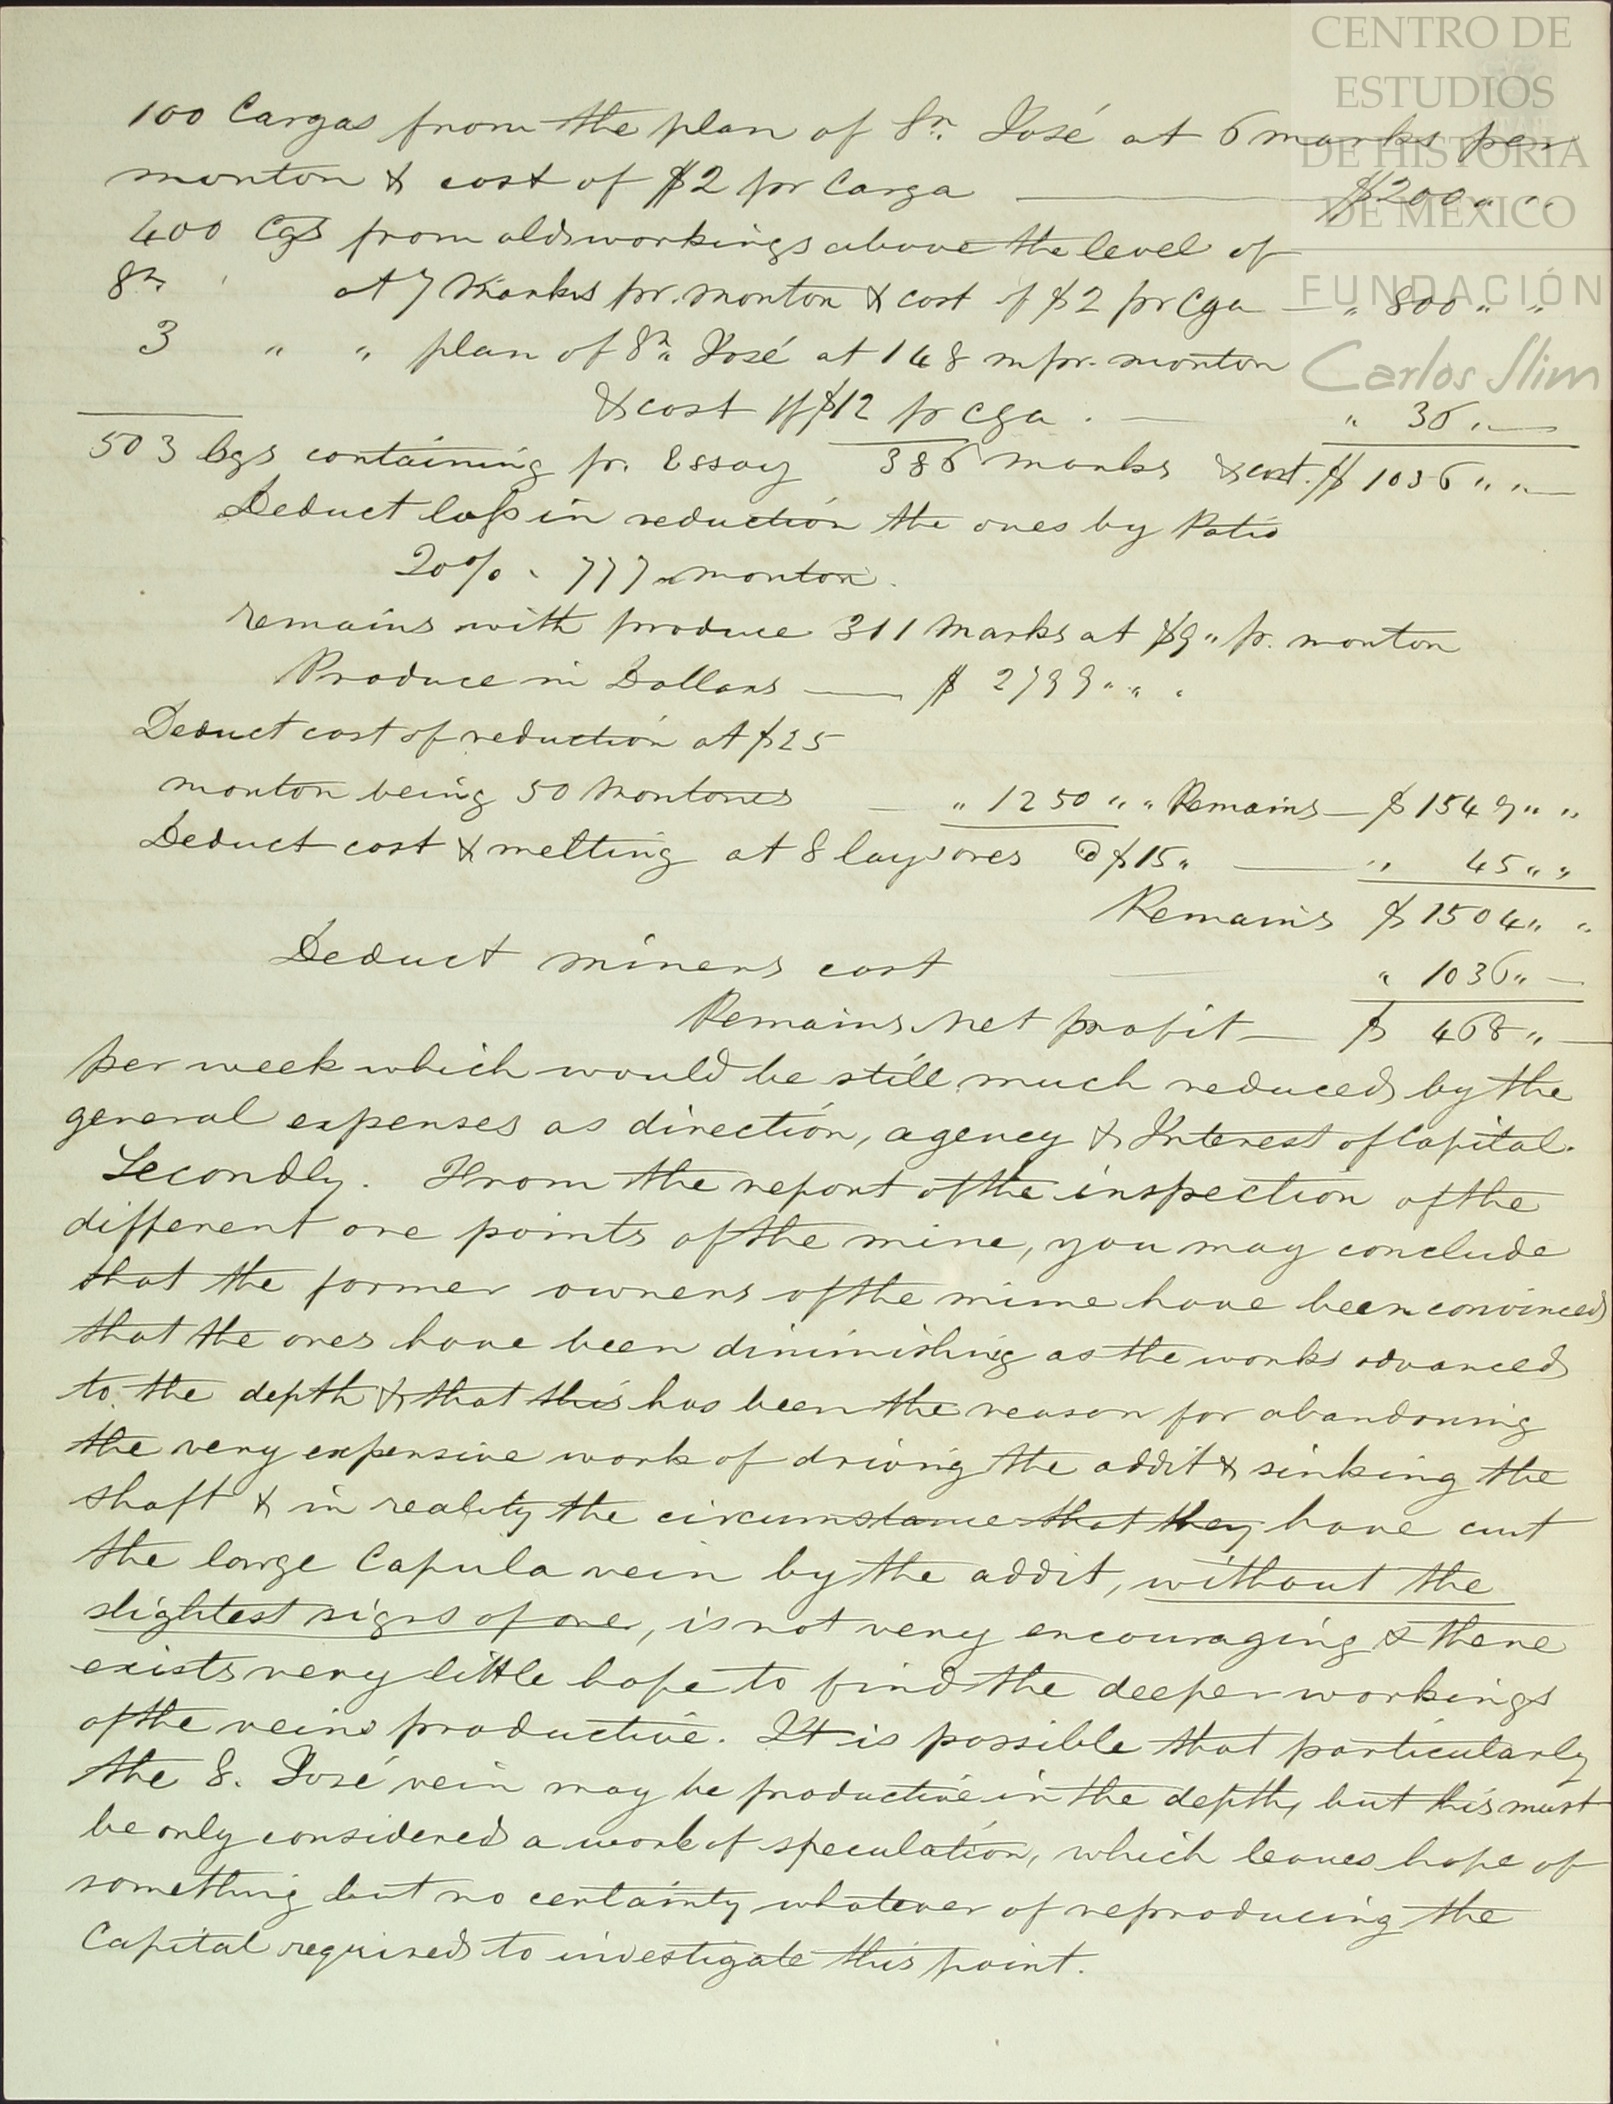 CENTRO DE
ESTUDIOS
DE HISTORIA
DE MÉXICO
FUNDACIÓN
Carlos Slim
100 Cargas from the plan of Sn. José at 6 marks per
monton & cost of $2 pr Carga — $200 " "
400 Cgs from old workings above the level of
Sn. " at 7 Marks pr. monton & cost of $2 pr Cga — " 800 " "
3 " " plan of Sn. José at 148 m pr. monton
& cost of $12 pr cga. — " 36 " —
503 Cgs containing pr. Essay 386 marks & cost. $ 1036 " " —
Deduct loss in reduction the ores by Patio
20% " 777 monton.
remains with produce 311 Marks at $9 " pr. monton
Produce in Dollars — $ 2799 " " "
Deduct cost of reduction at $25
monton being 50 Montones — " 1250 " " Remains — $ 1549 " "
Deduct cost & melting at 8 ores @ $15 " — " 45 " "
Remains $ 1504 " "
Deduct miners cost — " 1036 " —
Remains net profit — $ 468 " —
per week which would be still much reduced by the
general expenses as direction, agency & Interest of Capital.
Secondly. From the report of the inspection of the
different ore points of the mine, you may conclude
that the former owners of the mine have been convinced
that the ores have been diminishing as the works advanced
to the depth & that this has been the reason for abandoning
the very expensive work of driving the addit & sinking the
shaft & in reality the circumstance that they have cut
the large Capula vein by the addit, without the
slightest signs of ore, is not very encouraging & there
exists very little hope to find the deeper workings
of the veins productive. It is possible that particularly
the S. José vein may be productive in the depth, but this must
be only considered a work of speculation, which leaves hope of
something but no certainty whatever of reproducing the
Capital required to investigate this point.